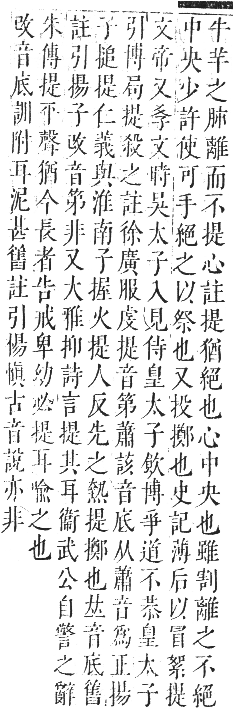 牛羊之肺離而不提心註提猶絕也心中央也雖割離之不絕
中央少許使可手絕之以祭也又投擲也史記薄后以冒絮提
文帝又孝文時吳太子入見侍皇太子飮博爭道不恭皇太子
引博局提殺之註徐廣服虔提音第蕭該音底从蕭音爲正揚
子搥提仁義與淮南子握火提人反先之熱提擲也𠀤音底舊
註引揚子攺音第非又大雅抑詩言提其耳衞武公自警之辭
朱傳提平聲猶今長者告戒卑幼必提耳喩之也
攺音底訓附耳泥甚舊註引楊愼古音說亦非